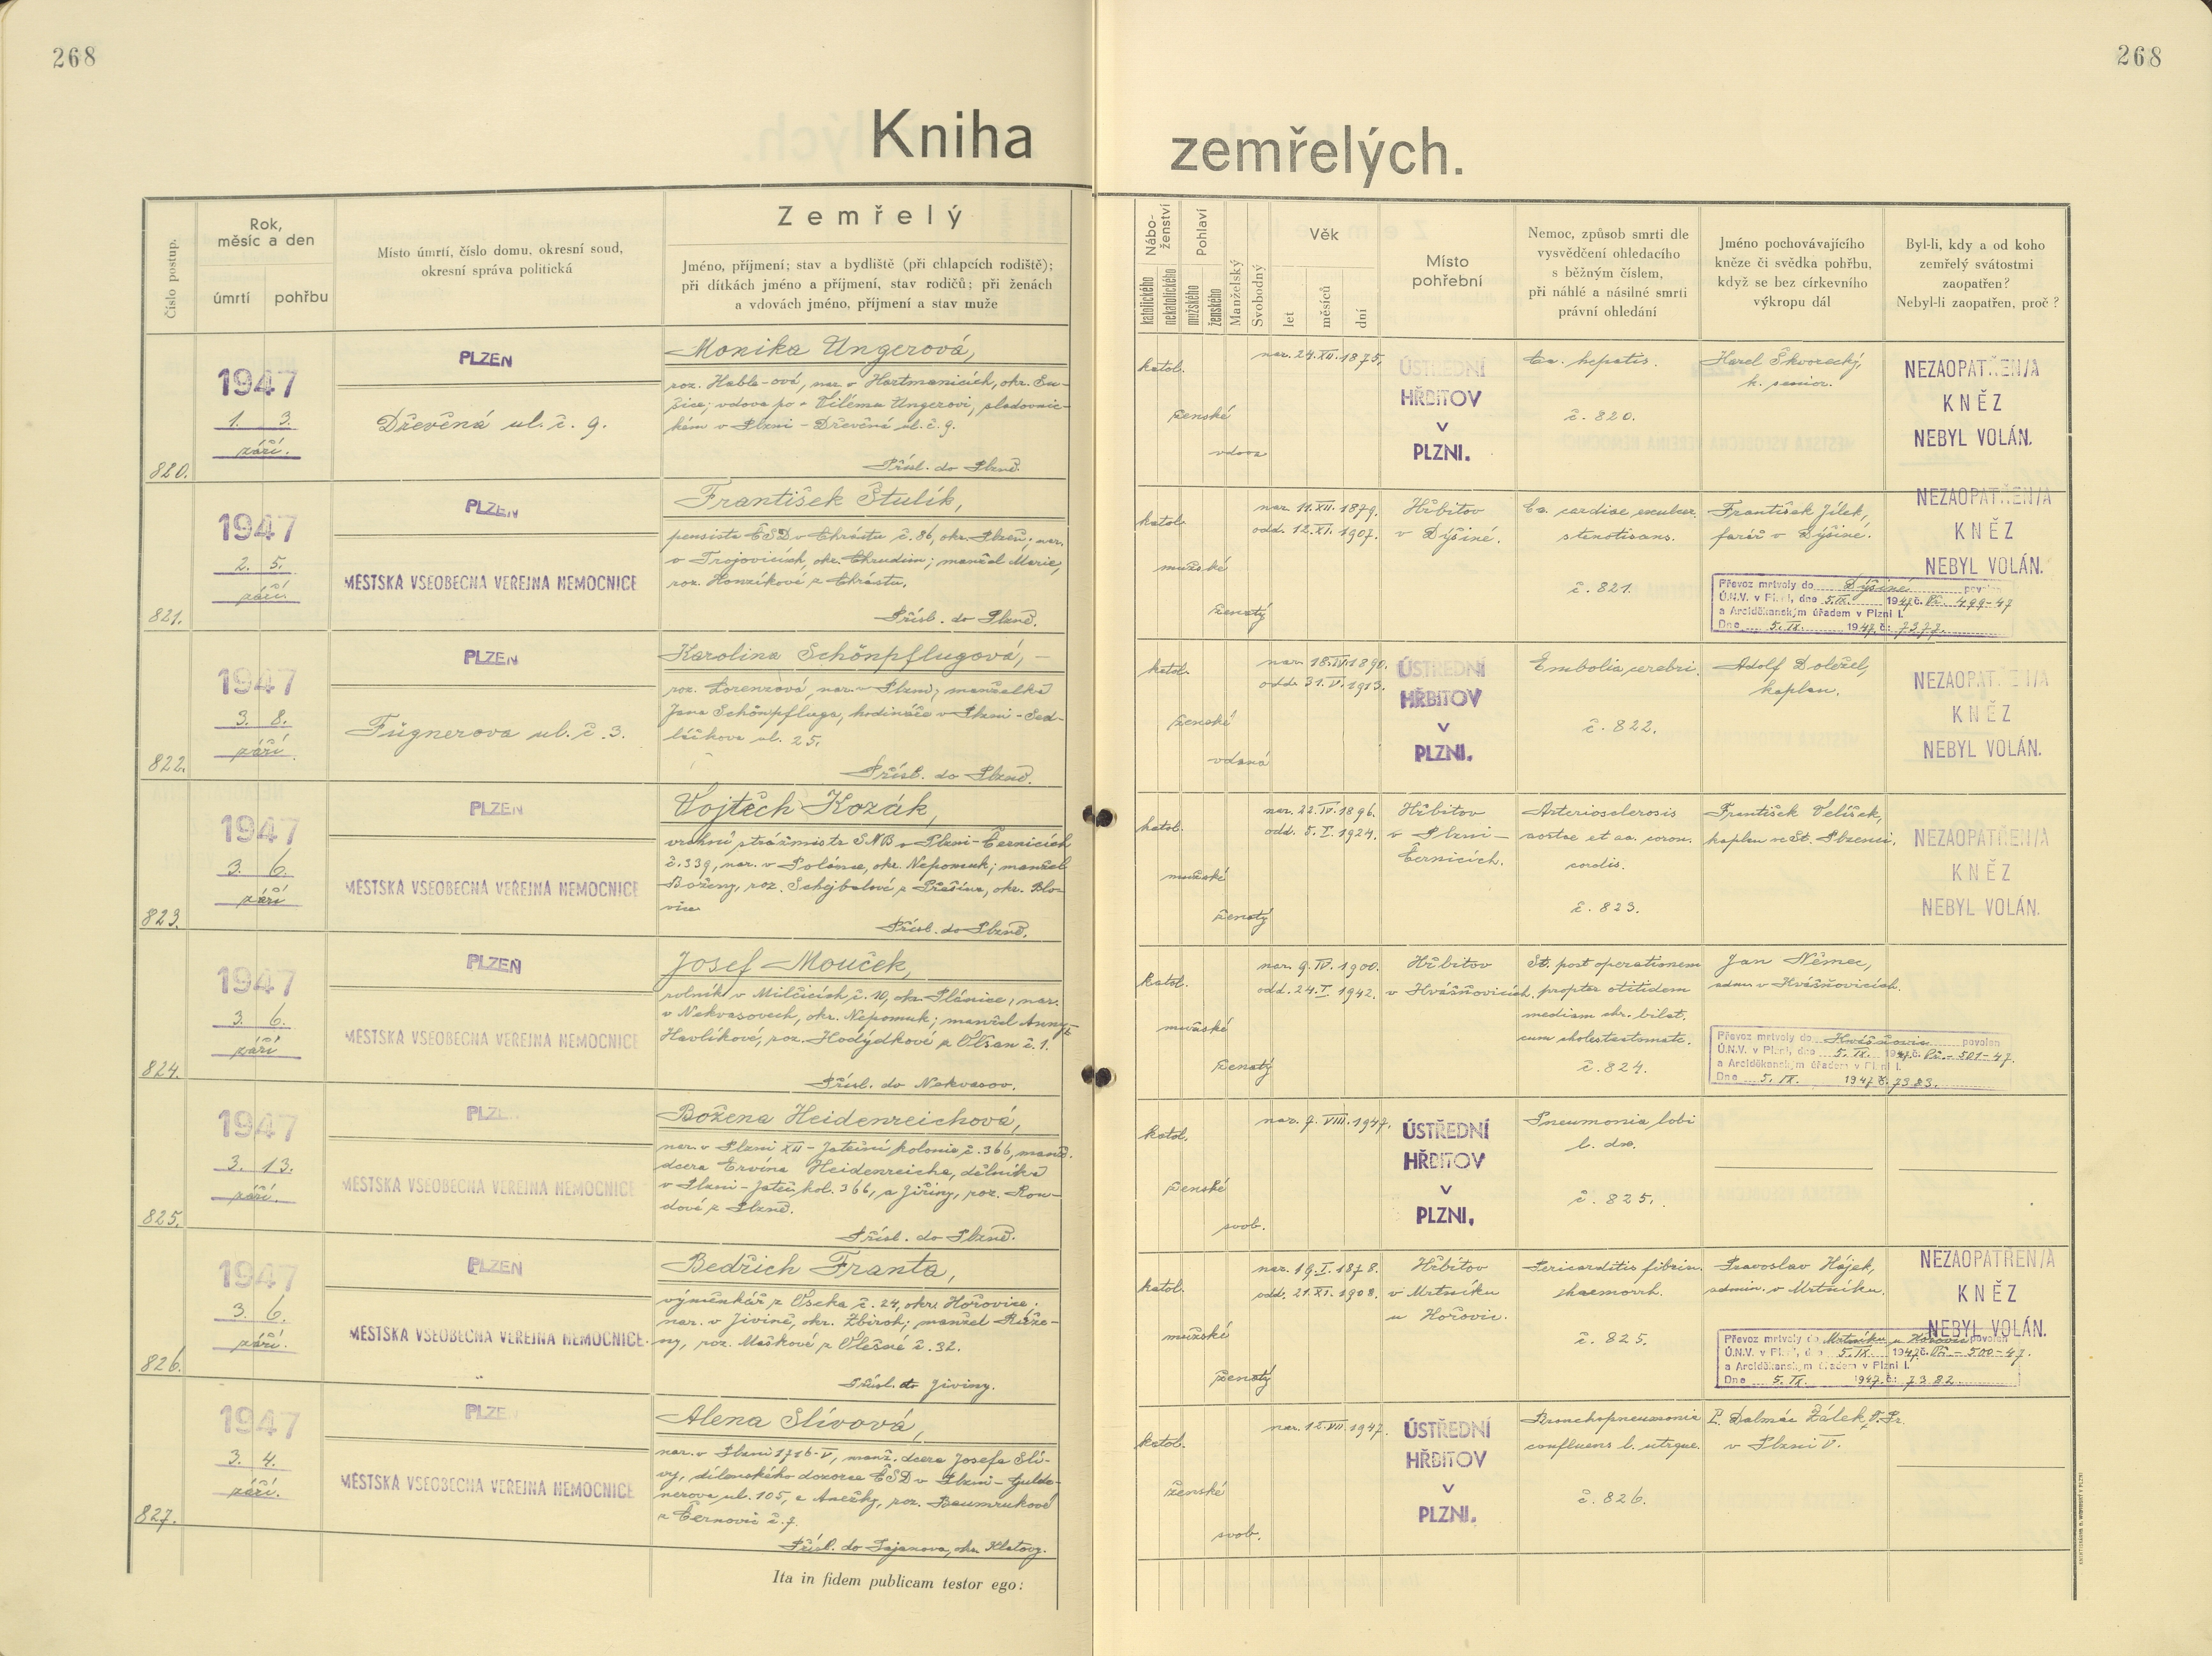 268
268
Kniha zemřelých.
Číslo postup.
Rok,
měsíc a den
úmrtí
pohřbu
Místo úmrtí, číslo domu, okresní soud,
okresní správa politická
Zemřelý
Jméno, příjmení; stav a bydliště (při chlapcích rodiště);
při dítkách jméno a příjmení, stav rodičů; při ženách
a vdovách jméno, příjmení a stav muže
Nábo-
ženství
katolického
nekatolického
Pohlaví
mužského
ženského
Manželský
Svobodný
Věk
let
měsíců
dní
Místo
pohřební
Nemoc, způsob smrti dle
vysvědčení ohledacího
s běžným číslem,
při náhlé a násilné smrti
právní ohledání
Jméno pochovávajícího
kněze či svědka pohřbu,
když se bez církevního
výkropu dál
Byl-li, kdy a od koho
zemřelý svátostmi
zaopatřen?
Nebyl-li zaopatřen, proč?
820.
1947
1. 3.
září.
PLZEN
Dřevěná ul. č. 9.
Monika Ungerová,
roz. Habla-ová, nar. v Hartmanicích, okr. Su-
šice; vdova po + Vilému Ungerovi, sladovnic-
kém v Plzni - Dřevěná ul. č. 9.
Přísl. do Plzně.
katol.
ženské
vdova
nar. 24. XII. 1875.
ÚSTŘEDNÍ
HŘBITOV
V
PLZNI.
Ca. hepatis.
č. 820.
Karel Škvorecký,
k. senior.
NEZAOPATŘEN/A
KNĚZ
NEBYL VOLÁN.
821.
1947
2. 5.
září.
PLZEN
MĚSTSKÁ VŠEOBECNÁ VEŘEJNÁ NEMOCNICE
František Štulík,
pensista ČSD v Chrástu č. 86, okr. Plzeň; nar.
v Trojovicích, okr. Chrudim; manžel Marie,
roz. Honzíkové z Chrástu.
Přísl. do Plzně.
katol.
mužské
ženatý
nar. 11. XII. 1879.
odd. 12. XI. 1907.
Hřbitov
v Dýšiné.
Ca. cardiae exulcer.
stenotisans.
č. 821.
František Jílek,
farář v Dýšiné.
NEZAOPATŘEN/A
KNĚZ
NEBYL VOLÁN.
Převoz mrtvoly do Dýšiné povolen
Ú.N.V. v Plzni, dne 5. IX. 1947 č. Př. - 499-47
a Arciděkanským úřadem v Plzni I.
Dne 5. IX. 1947 č: 7377.
822.
1947
3. 8.
září.
PLZEN
Fügnerova ul. č. 3.
Karolina Schönpflugová,
roz. Lorenzová, nar. v Plzni; manželka
Jana Schönpfluga, hodináře v Plzni - Sed-
láčkova ul. 25.
Přísl. do Plzně.
katol.
ženské
vdaná
nar. 18. IV. 1890.
odd. 31. V. 1913.
ÚSTŘEDNÍ
HŘBITOV
V
PLZNI.
Embolia cerebri.
č. 822.
Adolf Doležel,
kaplan.
NEZAOPATŘEN/A
KNĚZ
NEBYL VOLÁN.
823.
1947
3. 6.
září
PLZEN
MĚSTSKÁ VŠEOBECNÁ VEŘEJNÁ NEMOCNICE
Vojtěch Kozák,
vrchní strážmistr SNB v Plzni-Černicích
č. 339, nar. v Polánce, okr. Nepomuk; manžel
Boženy, roz. Schejbalové z Přešína, okr. Blo-
vice
Přísl. do Plzně.
katol.
mužské
ženatý
nar. 22. IV. 1896.
odd. 5. I. 1924.
Hřbitov
v Plzni -
Černicích.
Arteriosclerosis
aortae et aa. coron.
cordis.
č. 823.
František Velíšek,
kaplan ve St. Plzenci.
NEZAOPATŘEN/A
KNĚZ
NEBYL VOLÁN.
824.
1947
3. 6.
září
PLZEN
MĚSTSKÁ VŠEOBECNÁ VEŘEJNÁ NEMOCNICE
Josef Mouček,
rolník v Milčicích, č. 10, okr. Plánice; nar.
v Nekvasovech, okr. Nepomuk; manžel Anny
Havlíkové, roz. Hodýdkové z Olšan č. 1.
Přísl. do Nekvasov.
katol.
mužské
ženatý
nar. 9. IV. 1900.
odd. 24. I. 1942.
Hřbitov
v Kvášňovicích.
St. post operationem
propter otitidem
mediam chr. bilat.
cum cholesteatomate.
č. 824.
Jan Němec,
adm. v Kvášňovicích.
Převoz mrtvoly do Kvášňovic povolen
Ú.N.V. v Plzni, dne 5. IX. 1947 č. Př. - 501-47.
a Arciděkanským úřadem v Plzni I.
Dne 5. IX. 1947 č. 7383.
825.
1947
3. 13.
září.
PLZEN
MĚSTSKÁ VŠEOBECNÁ VEŘEJNÁ NEMOCNICE
Božena Heidenreichová,
nar. v Plzni XII - Jateční kolonie č. 366, manž.
dcera Ervína Heidenreicha, dělníka
v Plzni - Jateč. kol. 366, a Jiřiny, roz. Rou-
dové z Plzně.
Přísl. do Plzně.
katol.
ženské
svob.
nar. 7. VIII. 1947.
ÚSTŘEDNÍ
HŘBITOV
V
PLZNI.
Pneumonia lobi
l. dx.
č. 825.
826.
1947
3. 6.
září.
PLZEN
MĚSTSKÁ VŠEOBECNÁ VEŘEJNÁ NEMOCNICE.
Bedřich Franta,
výměnkář z Oseka č. 24, okr. Hořovice;
nar. v Jivině, okr. Zbiroh; manžel Růže-
ny, roz. Maškové z Olešné č. 32.
Přísl. do Jiviny.
katol.
mužské
ženatý
nar. 19. I. 1878.
odd. 21. XI. 1908.
Hřbitov
v Mrtníku
u Hořovic.
Pericarditis fibrin.
haemorrh.
č. 825.
Pravoslav Hájek,
admin. v Mrtníku.
NEZAOPATŘEN/A
KNĚZ
NEBYL VOLÁN.
Převoz mrtvoly do Mrtníku u Hořovic povolen
Ú.N.V. v Plzni, dne 5. IX. 1947 č. Př. - 500-47.
a Arciděkanským úřadem v Plzni I.
Dne 5. IX. 1947 č: 7382.
827.
1947
3. 4.
září.
PLZEN
MĚSTSKÁ VŠEOBECNÁ VEŘEJNÁ NEMOCNICE
Alena Slívová,
nar. v Plzni 1716-V, manž. dcera Josefa Slí-
vy, dílenského dozorce ČSD v Plzni - Gulde-
nerova ul. 105, a Anežky, roz. Baumrukové
z Černovic č. 7.
Přísl. do Jajanova, okr. Klatovy.
katol.
ženské
svob.
nar. 12. VII. 1947.
ÚSTŘEDNÍ
HŘBITOV
V
PLZNI.
Bronchopneumonia
confluens l. utrque.
č. 826.
P. Dalmác Žálek, O. Pr.
v Plzni V.
Ita in fidem publicam testor ego: